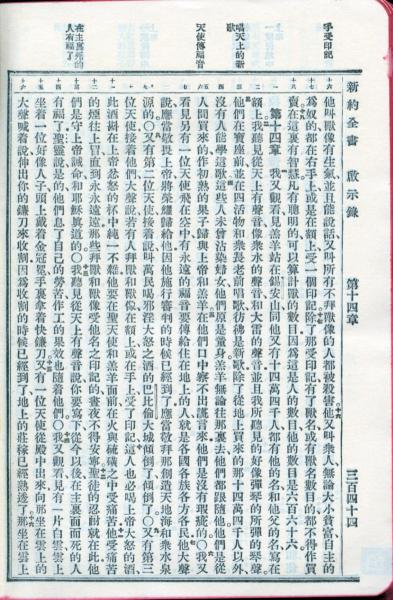 新約全書 啟示錄 第十四章 三百四十四
手受印記
唱天上的新歌
天使傳福音
在主裏死的人有福了
他叫獸像有生氣並且能說話又叫所有不拜獸像的人都被殺害他又叫衆人無論大小貧富自主的
為奴的都在右手上或是在額上受一個印記除了那受印記有了獸名或有獸名數目的都不得作買
賣在這裏有智慧凡有聰明的可以算計獸的數目因為這是人的數目他的數目是六百六十六
第十四章 我又觀看見羔羊站在錫安山同他又有十四萬四千人都有他的名和他父的名寫在
額上我聽見從天上有聲音像衆水的聲音和大雷的聲音並且我所聽見的好像彈琴的所彈的琴聲
他們在寶座前並在四活物和衆長老前唱歌彷彿是新歌除了從地上買來的那十四萬四千人以外
沒有人能學這歌這些人未曾沾染婦女他們原是童身羔羊無論往那裏去他們都跟隨他他們是從
人間買來的作初熟的果子歸與上帝和羔羊在他們口中察不出謊言來他們是沒有瑕疵的〇我又
看見另有一位天使飛在空中有永遠的福音要傳給住在地上的人就是各國各族各方各民他大聲
說應當敬畏上帝將榮耀歸給他因他施行審判的時候已經到了應當敬拜那創造天地海和衆水泉
源的〇又有第二位天使接着說叫萬民喝邪淫大怒之酒的巴比倫大城傾倒了傾倒了〇又有第三
位天使接着他們大聲說若有人拜獸和獸像在額上或在手上受了印記這人也必喝上帝大怒的酒
此酒斟在上帝忿怒的杯中純一不雜他要在聖天使和羔羊面前在火與硫磺之中受痛苦他受痛苦
的煙往上冒直到永永遠遠那些拜獸和獸像受他名之印記的晝夜不得安寧聖徒的忍耐就在此他
們是守上帝誡命和耶穌眞道的〇我聽見從天上有聲音說你要寫下從今以後在主裏面而死的人
有福了聖靈說是的他們息了自己的勞苦作工的果效也隨着他們〇我又觀看見有一片白雲雲上
坐着一位好像人子頭上戴着金冠冕手裏拿着快鐮刀又有一位天使從殿中出來向那坐在雲上的
大聲喊着說伸出你的鐮刀來收割因為收割的時候已經到了地上的莊稼已經熟透了那坐在雲上